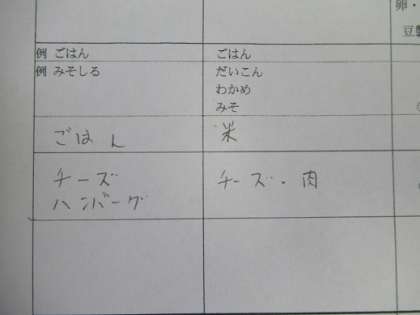 卵・
豆製
例 ごはん ごはん
例 みそしる だいこん
わかめ
みそ
ごはん 米
チーズ チーズ・肉
ハンバーグ